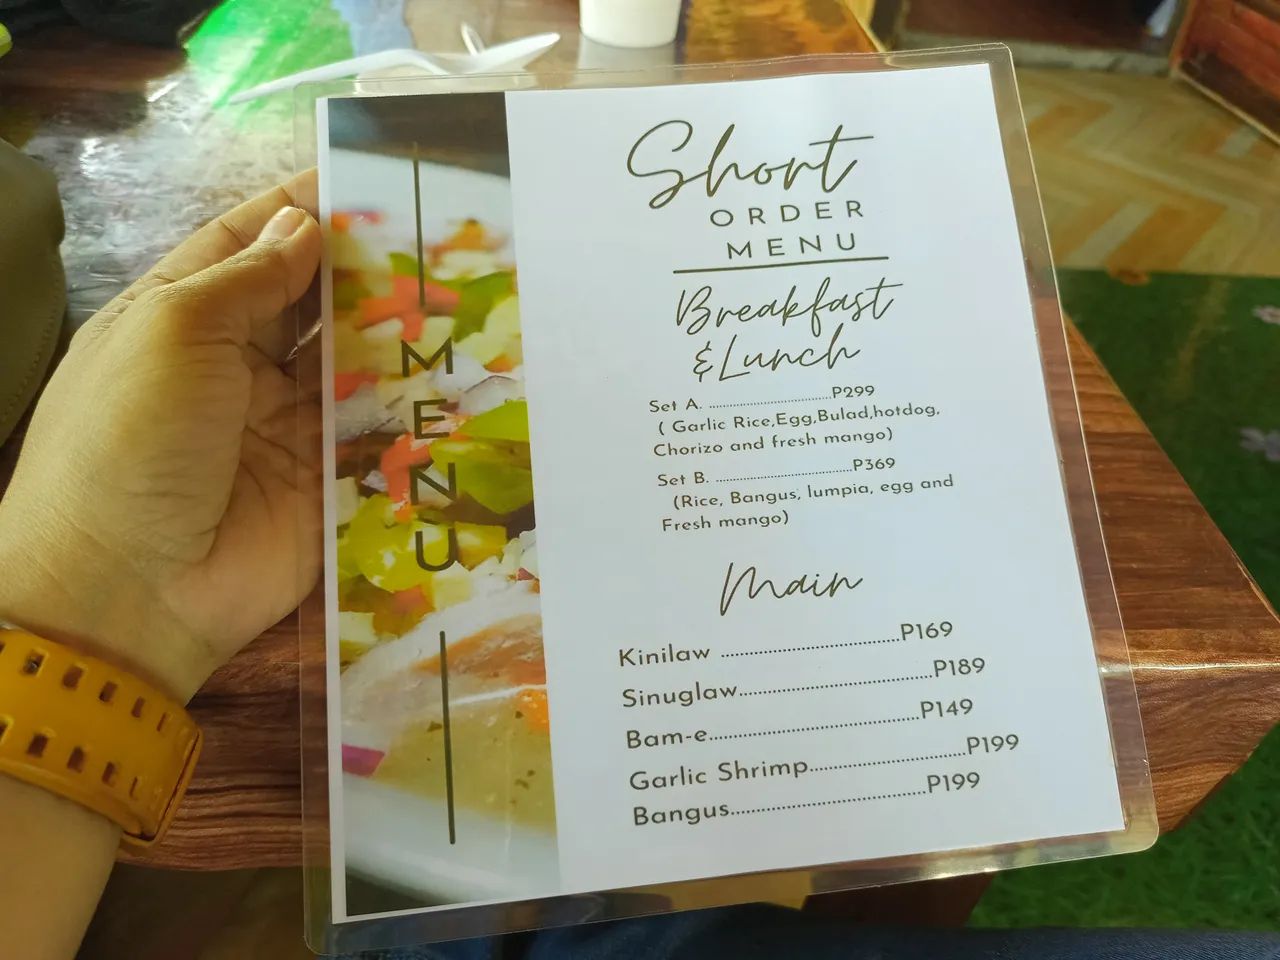 MENU
Short
ORDER
MENU
Breakfast
& Lunch
Set A. ........................................P299
( Garlic Rice,Egg,Bulad,hotdog,
Chorizo and fresh mango)
Set B. ........................................P369
(Rice, Bangus, lumpia, egg and
Fresh mango)
Main
Kinilaw ........................................P169
Sinuglaw........................................P189
Bam-e........................................P149
Garlic Shrimp................................P199
Bangus........................................P199